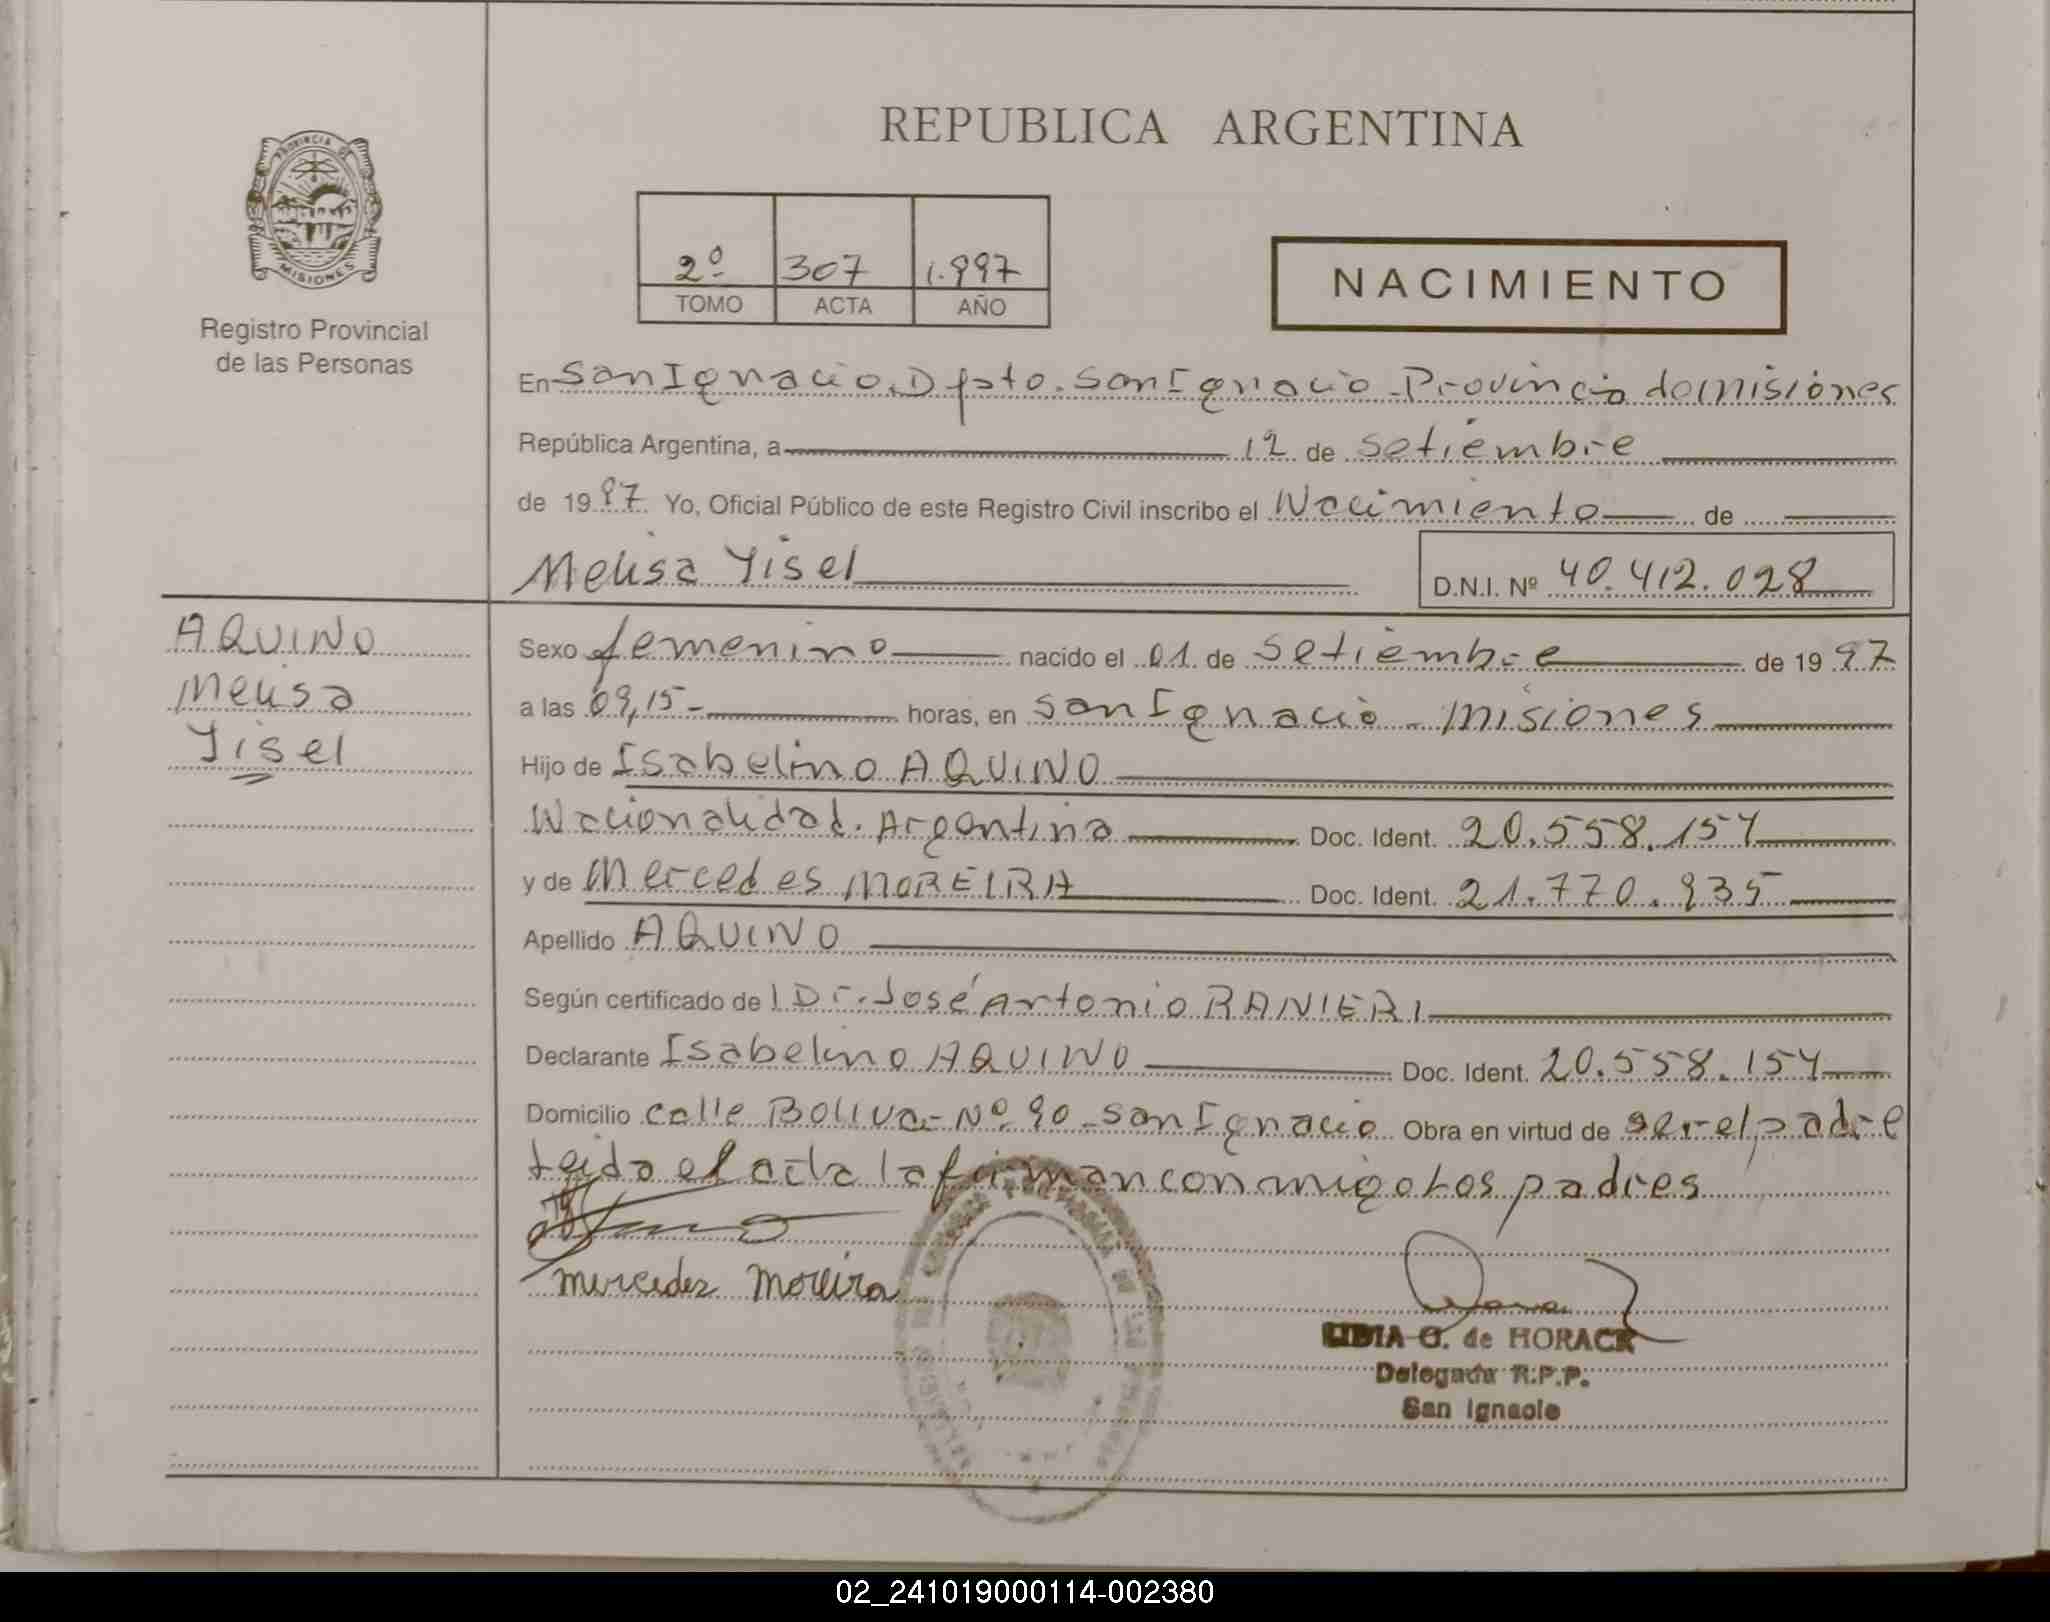 REPUBLICA ARGENTINA
PROVINCIA DE MISIONES
Registro Provincial
de las Personas
2º 307 1.997
TOMO ACTA AÑO
NACIMIENTO
En San Ignacio. Dpto. San Ignacio - Provincia de misiones
República Argentina, a 12 de setiembre
de 1997 Yo, Oficial Público de este Registro Civil inscribo el Nacimiento de
Melisa Yisel
D.N.I. Nº 40.412.028
AQUINO
Melisa
Yisel
Sexo femenino nacido el 01 de setiembre de 1997
a las 09,15- horas, en San Ignacio - misiones
Hijo de Isabelino AQUINO
Nacionalidad. Argentina Doc. Ident. 20.558.154
y de Mercedes MOREIRA Doc. Ident. 21.770.935
Apellido AQUINO
Según certificado del Dr. José Antonio RANIERI
Declarante Isabelino AQUINO Doc. Ident. 20.558.154
Domicilio calle Bolivar Nº 90 - San Ignacio Obra en virtud de ser el padre
leida el acta la firman conmigo los padres
mercedez moreira
LIDIA G. de HORACK
Delegada R.P.P.
San Ignacio
02_241019000114-002380